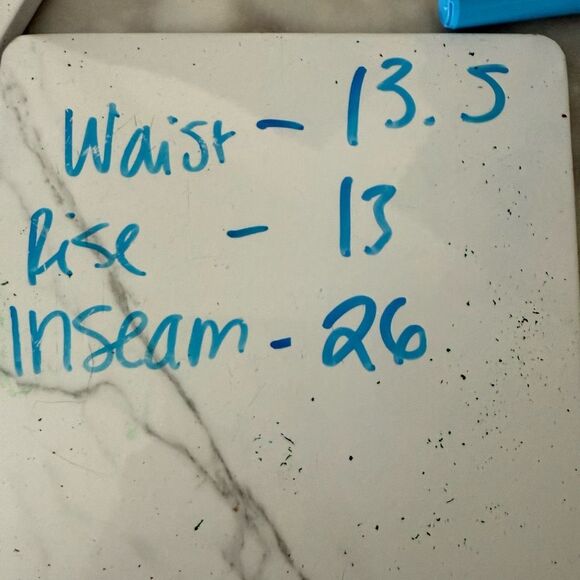 Waist - 13.5
Rise - 13
Inseam - 26